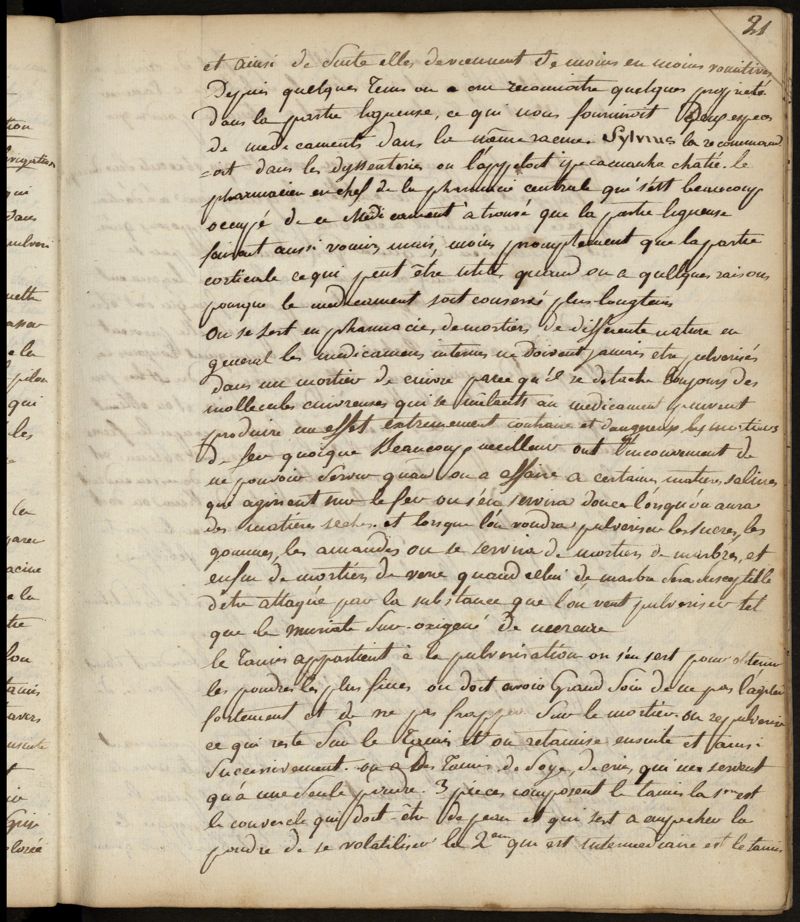 21
et ainsi de suite elles deviennent de moins en moins vomitives
Depuis quelques tems on a cru reconnoitre quelques propriété
dans la partie ligneuse, ce qui nous fournirait deux especes
de medicaments dans la même racine. Sylvius la recommand
=oit dans les dyssenteries on l'appeloit ipecacuanha chatié. le
pharmacien en chef de la pharmacie centrale qui s'est beaucoup
occupé de ce medicament a trouvé que la partie ligneuse
faisoit aussi vomir, mais, moins promptement que la partie
corticale ce qui peut être utile quand on a quelques raisons
pour que le medicament soit conservé plus longtems
On se sert en pharmacie, de mortiers de differente nature en
general les medicamens internes ne doivent jamais etre pulverisés
dans un mortier de cuivre parce qu'il se detache toujours des
mollecules cuivreuses qui se mêlants au medicament peuvent
produire un effet extremement contraire et dangereux, les mortiers
de fer quoique Beaucoup meilleurs ont l'inconvenient de
ne pouvoir servir quand on a affaire a certaines matieres salines
qui agissent sur le fer on s'en servira donc lorsqu'on aura
des matières seches. et lorsque l'on voudra pulveriser les sucres, les
gommes, les amandes on se servira de mortiers de marbres, et
enfin de mortiers de verre quand celui de marbre sera susceptible
d'être attaquée par la substance que l'on veut pulveriser tel
que le muriate sur-oxigené de mercure
le tamis appartient à la pulverisation on s'en sert pour obtenir
les poudres les plus fines on doit avoir Grand soin de ne pas l'agiter
fortement et de ne pas frapper sur le mortier. on repulverise
ce qui reste sur le tamis et on retamise ensuite et ainsi
successivement. on a des tamis de soye, de crin, qui ne servent
qu'à une seule poudre. 3 pieces composent le tamis la 1re est
le couvercle qui doit être de peau et qui sert a empecher la
poudre de se volatiliser la 2eme qui est intermediaire est le tamis